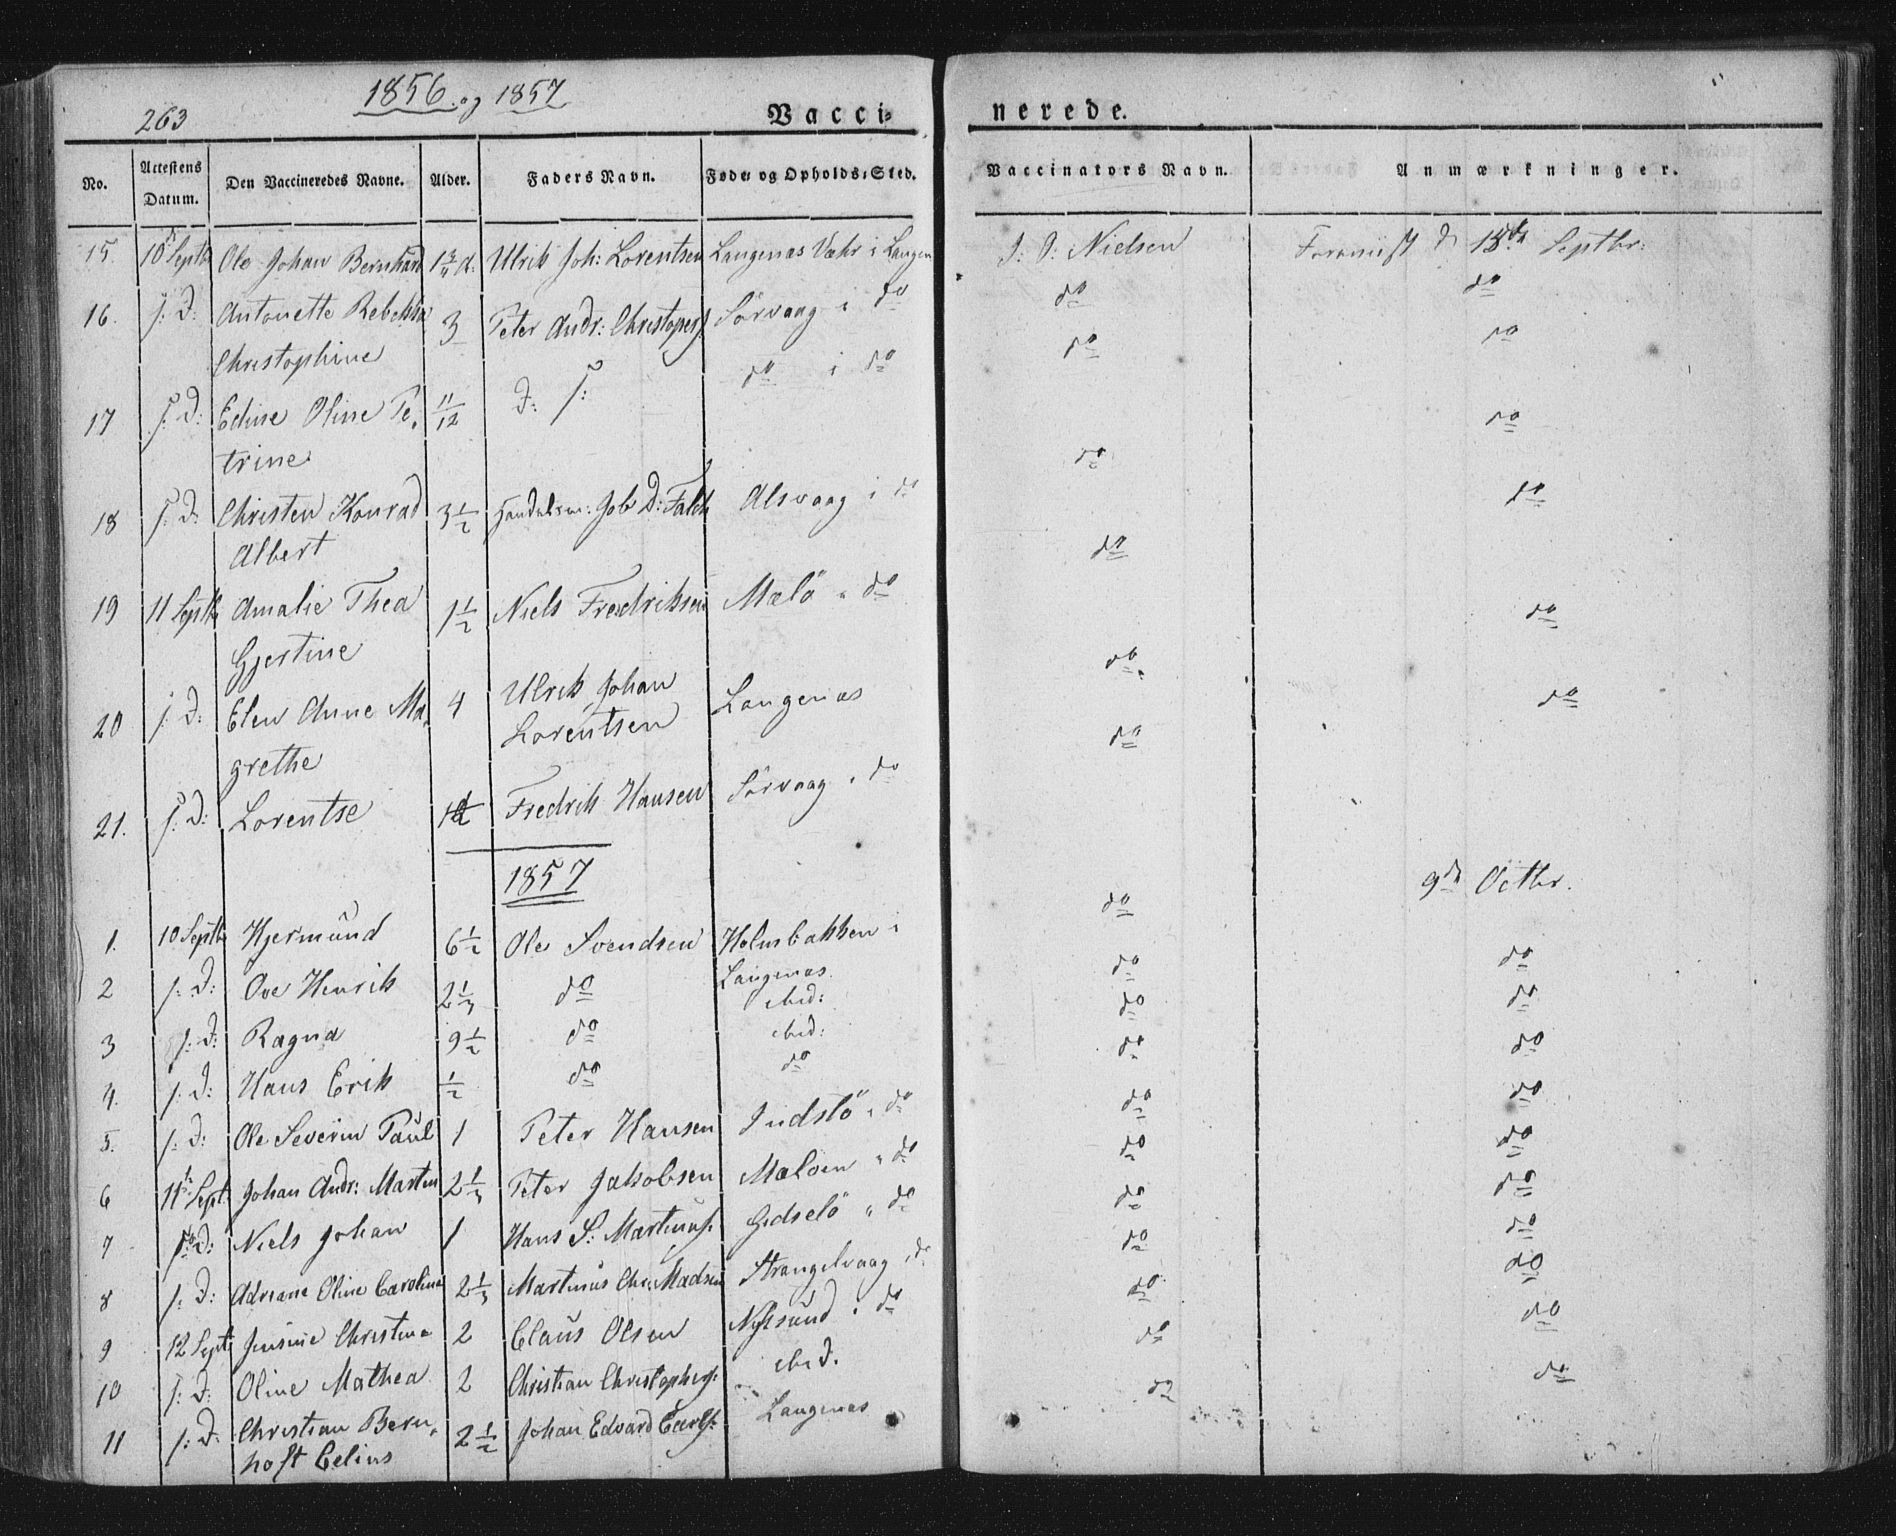 263
1856 og 1857
Vacci-
nerede.
No. Attestens Datum. Den Vaccineredes Navne. Alder. Faders Navn. Føde- og Opholds-Sted. Vaccinators Navn. Anmærkninger.
15. 10 Septb Ole Johan Bernhard Ulrik Joh: Lorentsen Langenæs Vær i Langen J: J: Nielsen Forevist d 13de Septbr:
16. s: d: Antonette Rebekka 3 Peter Andr: Christopers Sörvaag i do do do
Christophine
17 s: d: Edine Oline Pe- 11/12 d: s: do i do do do
trine
18 s: d: Christen Konrad 3 1/2 Handelsm: Job D: Falch Alsvaag i do do do
Albert
19 11 Septb Amalie Thea 1 1/2 Niels Fredriksen Malö " do do do
Gjertine
20 s: d: Elen Anne Ma- 4 Ulrik Johan Langenæs do do
grethe Lorentsen
21. s: d: Lorentse Fredrik Hansen Sörvaag i do do do
1857
1. 10 Septb Hjermund 6 1/2 Ole Svendsen Holmbakken i do 9de Octbr.
Langenæs
2 s: d: Ove Henrik 2 1/3 do ibid: do do
3 s: d: Ragna 9 1/2 do ibid: do do
4. s: d: Hans Erik 1/2 do do do do
5. s: d: Ole Severin Paul 1 Peter Hansen Indslö i do do do
6 11te Sept: Johan Andr: Martin 2 1/3 Peter Jakobsen Maløen " do do do
7 s: d: Niels Johan 1 Hans S: Martinus: Gidselö " do do do
8 s: d: Adriane Oline Caroline 2 1/3 Martinus Chr: Madsen Strengelvaag do do do
9 12 Sept: Jensine Christine 2 Claus Olsen Nyksund i do do do
10 s: d: Oline Mathea 2 Christian Christophers: ibid. do do
11 s: d: Christian Bern- 2 1/2 Johan Edvard Carls: Langenæs do do
hoft Celius